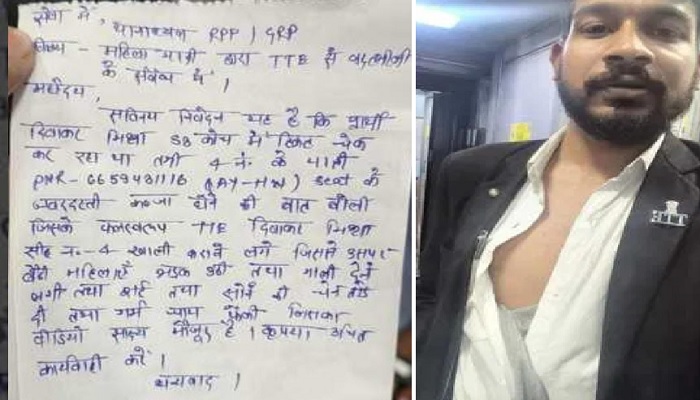 सेवा में,
थानाध्यक्ष RPF / GRP
विषय - महिला यात्री द्वारा TTE से बदतमीजी
के संबंध में।
महोदय,
सविनय निवेदन यह है कि प्रार्थी
दिवाकर मिश्रा S8 कोच में टिकट चेक
कर रहा था तभी 4 नं. के यात्री
PNR- 6659431116 seat के
जबरदस्ती कब्जा होने की बात बोली
जिसके फलस्वरूप TTE दिवाकर मिश्रा
सीट नं.-4 खाली कराने लगे जिसमें उसपर
बैठी महिलाएँ भड़क उठी तथा गाली देने
लगी तथा शर्ट तथा सोने की चेन तोड़
दी तथा गर्म चाय फेंकी जिसका
वीडियो साक्ष्य मौजूद है। कृपया उचित
कार्यवाही करें।
धन्यवाद।